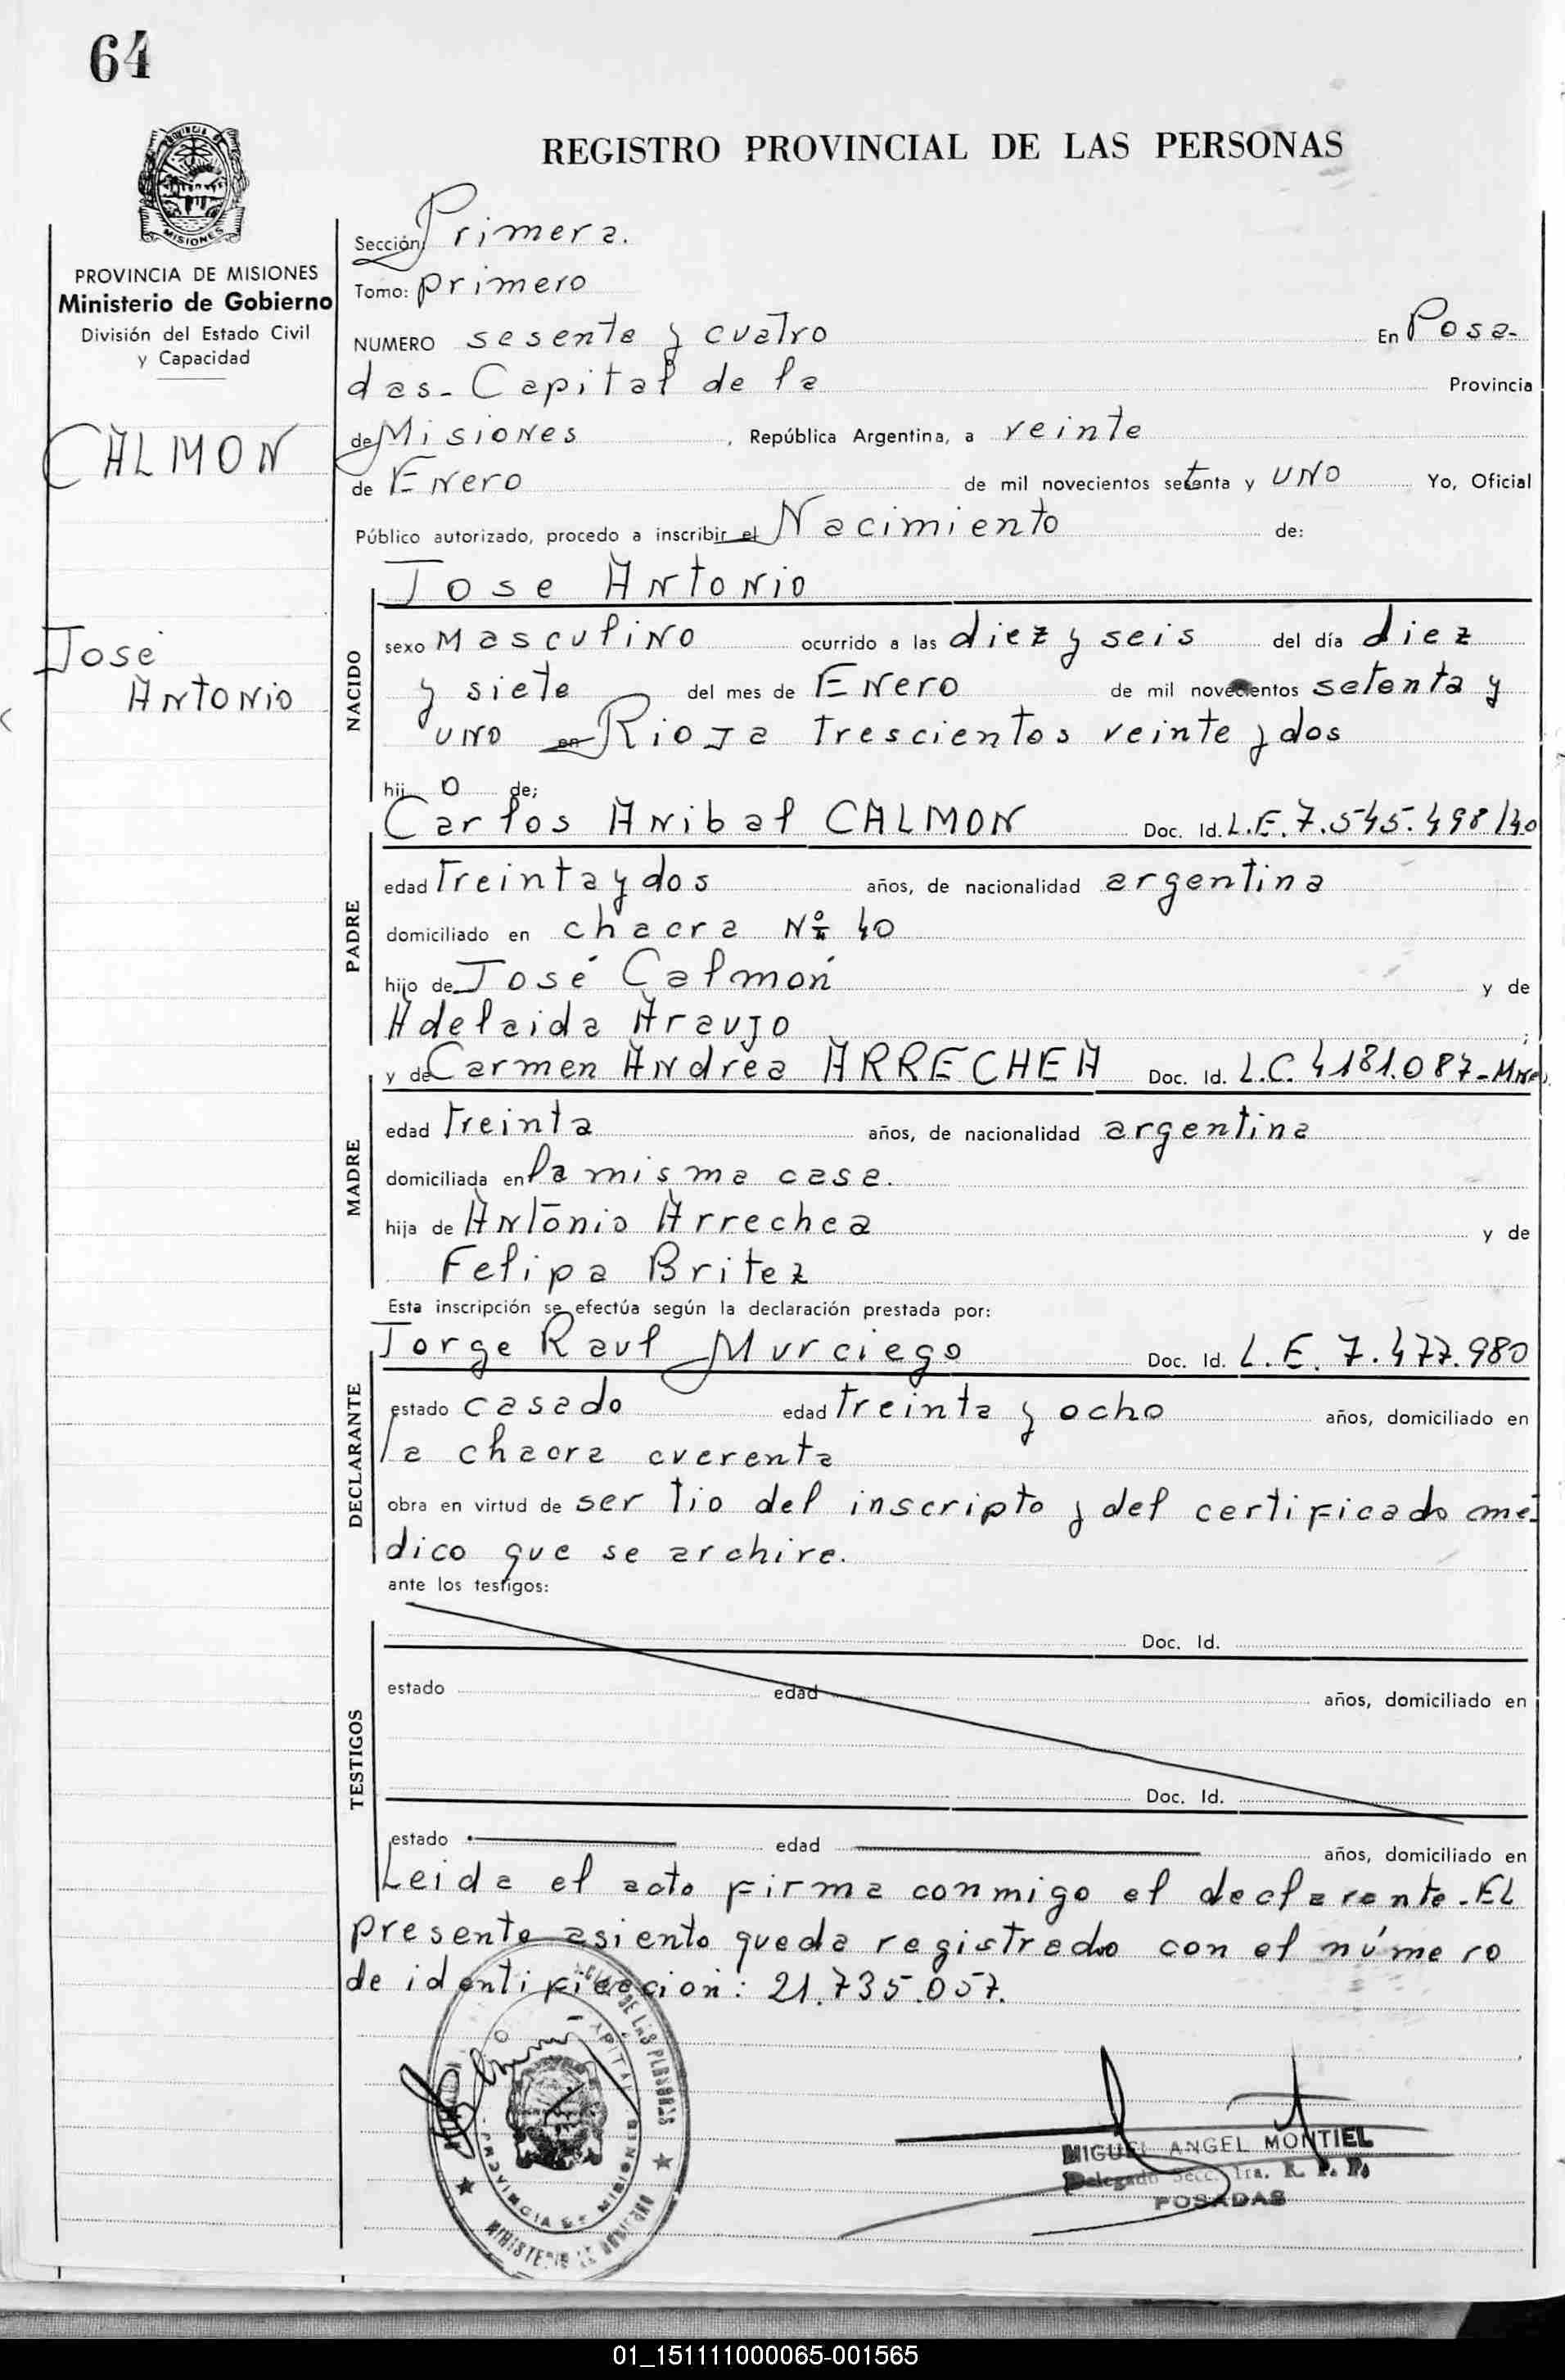 64
REGISTRO PROVINCIAL DE LAS PERSONAS
MISIONES
PROVINCIA DE MISIONES
Ministerio de Gobierno
División del Estado Civil
y Capacidad
CALMON
José
Antonio
Sección: Primera.
Tomo: primero
NUMERO sesenta y cuatro En Posa-
das - Capital de la Provincia
de Misiones , República Argentina, a veinte
de Enero de mil novecientos setenta y uno Yo, Oficial
Público autorizado, procedo a inscribir el Nacimiento de:
NACIDO
Jose Antonio
sexo masculino ocurrido a las diez y seis del día diez
y siete del mes de Enero de mil novecientos setenta y
uno en Rioja trescientos veinte y dos
hij o de;
PADRE
Carlos Anibal CALMON Doc. Id. L.E. 7.545.498/40
edad treinta y dos años, de nacionalidad argentina
domiciliado en chacra Nº 40
hijo de José Calmón y de
Adelaida Araujo ;
MADRE
y de Carmen Andrea ARRECHEA Doc. Id. L.C. 4181.087-Mnes.
edad treinta años, de nacionalidad argentina
domiciliada en la misma casa.
hija de Antonio Arrechea y de
Felipa Britez
Esta inscripción se efectúa según la declaración prestada por:
DECLARANTE
Jorge Raul Murciego Doc. Id. L.E. 7.477.980
estado casado edad treinta y ocho años, domiciliado en
la chacra cuarenta
obra en virtud de ser tio del inscripto y del certificado mé-
dico que se archiva.
ante los testigos:
TESTIGOS
Doc. Id.
estado edad años, domiciliado en
Doc. Id.
estado edad años, domiciliado en
Leida el acta firma conmigo el declarante. El
presente asiento queda registrado con el número
de identificación: 21.735.057.
DE LAS PERSONAS
CAPITAL
PROVINCIA DE MISIONES
MINISTERIO DE GOBIERNO
MIGUEL ANGEL MONTIEL
Delegado Secc. 1ra. R. P. P.
POSADAS
01_151111000065-001565